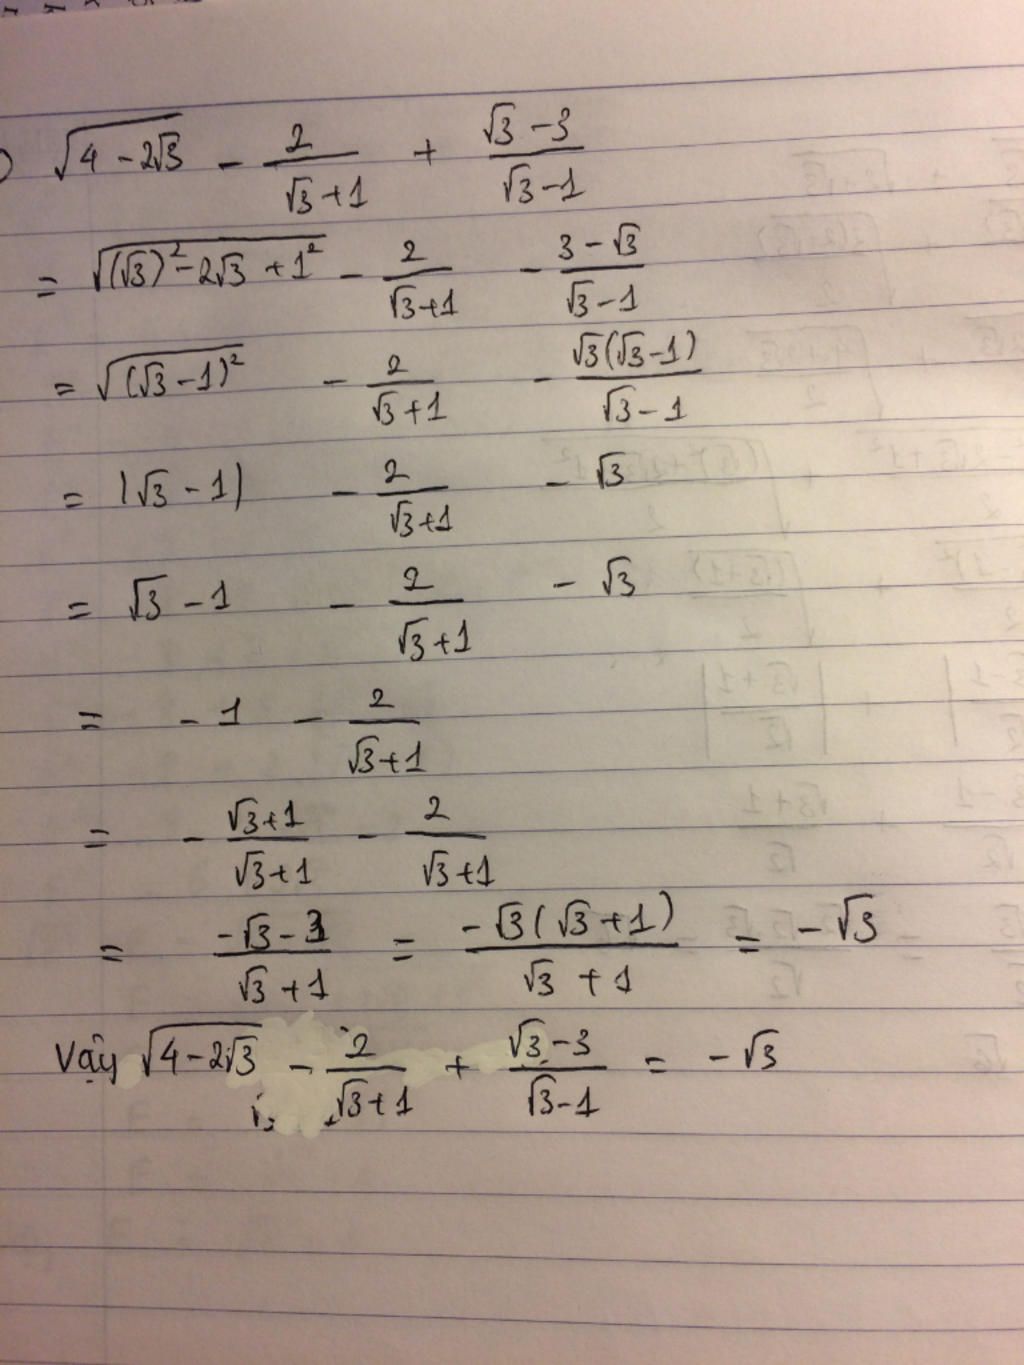 √(4 - 2√3) - 2/(√3 + 1) + (√3 - 3)/(√3 - 1)
= √((√3)² - 2√3 + 1²) - 2/(√3 + 1) - (3 - √3)/(√3 - 1)
= √((√3 - 1)²) - 2/(√3 + 1) - √3(√3 - 1)/(√3 - 1)
= |√3 - 1| - 2/(√3 + 1) - √3
= √3 - 1 - 2/(√3 + 1) - √3
= - 1 - 2/(√3 + 1)
= - (√3 + 1)/(√3 + 1) - 2/(√3 + 1)
= (-√3 - 3)/(√3 + 1) = -√3(√3 + 1)/(√3 + 1) = -√3
Vậy √(4 - 2√3) - 2/(√3 + 1) + (√3 - 3)/(√3 - 1) = -√3